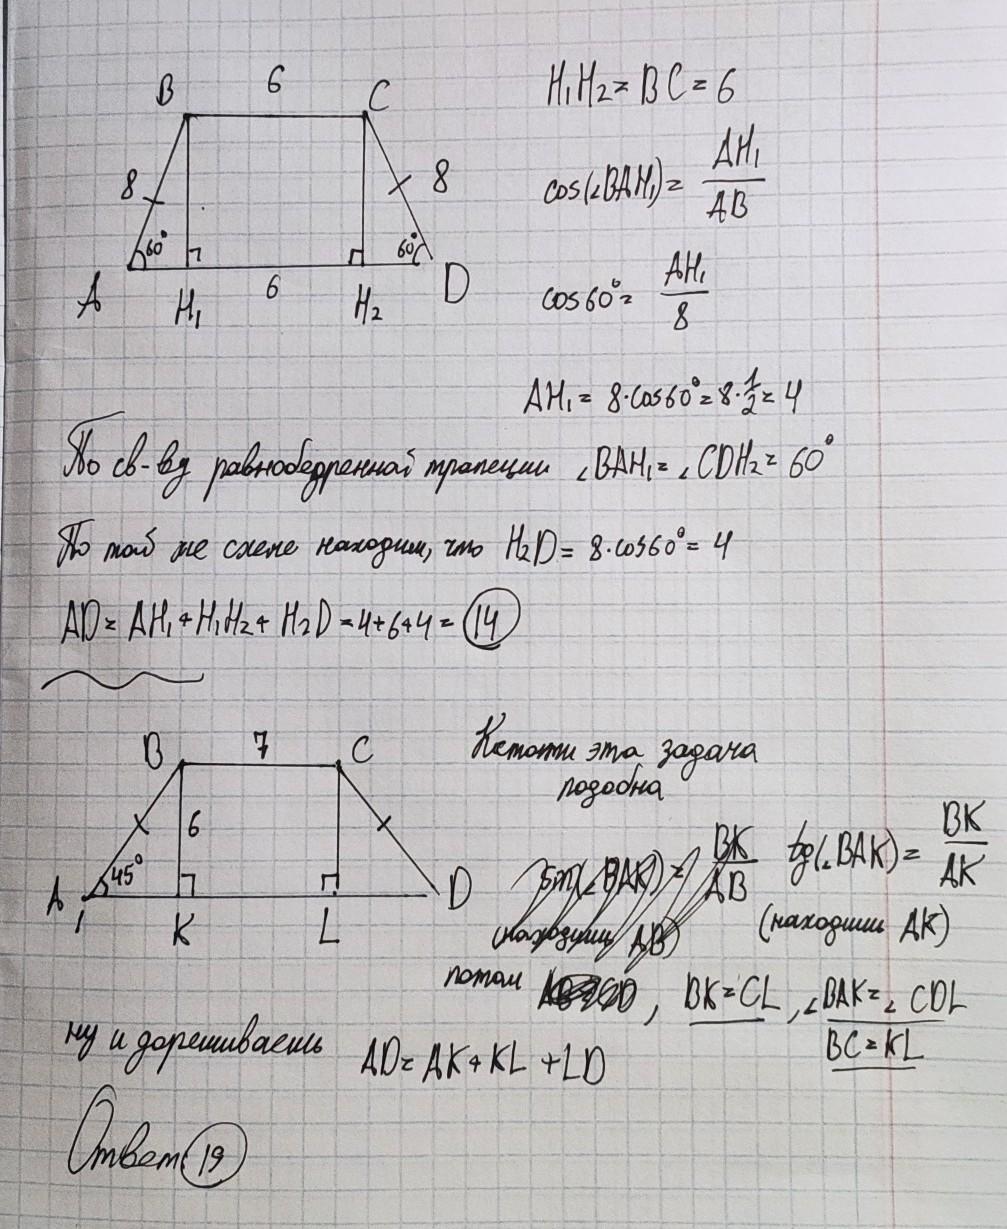 B 6 C
8 8
60° 60°
A H₁ 6 H₂ D
H₁H₂ = BC = 6
cos(∠BAH₁) = AH₁/AB
cos60° = AH₁/8
AH₁ = 8·cos60° = 8·1/2 = 4
По св-ву равнобедренной трапеции ∠BAH₁ = ∠CDH₂ = 60°
По той же схеме находим, что H₂D = 8·cos60° = 4
AD = AH₁ + H₁H₂ + H₂D = 4+6+4 = 14
B 7 C
6
45°
A K L D
Кстати эта задача
подобна
sin(∠BAK) = BK/AB tg(∠BAK) = BK/AK
(находим AB) (находим AK)
потом , BK = CL, ∠BAK = ∠CDL
BC = KL
ну и дорешиваешь AD = AK + KL + LD
Ответ: 19